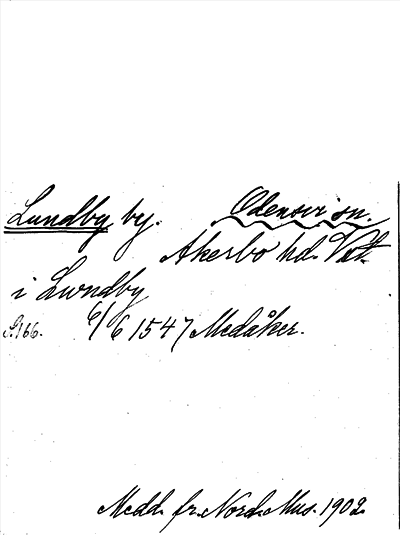 Lundby by. Odensvi sn.
Åkerbo hd. Vstl.
i Lwndby
S. 166. 6/6 1547 Medåker.
Medd. fr. Nord. Mus. 1902.